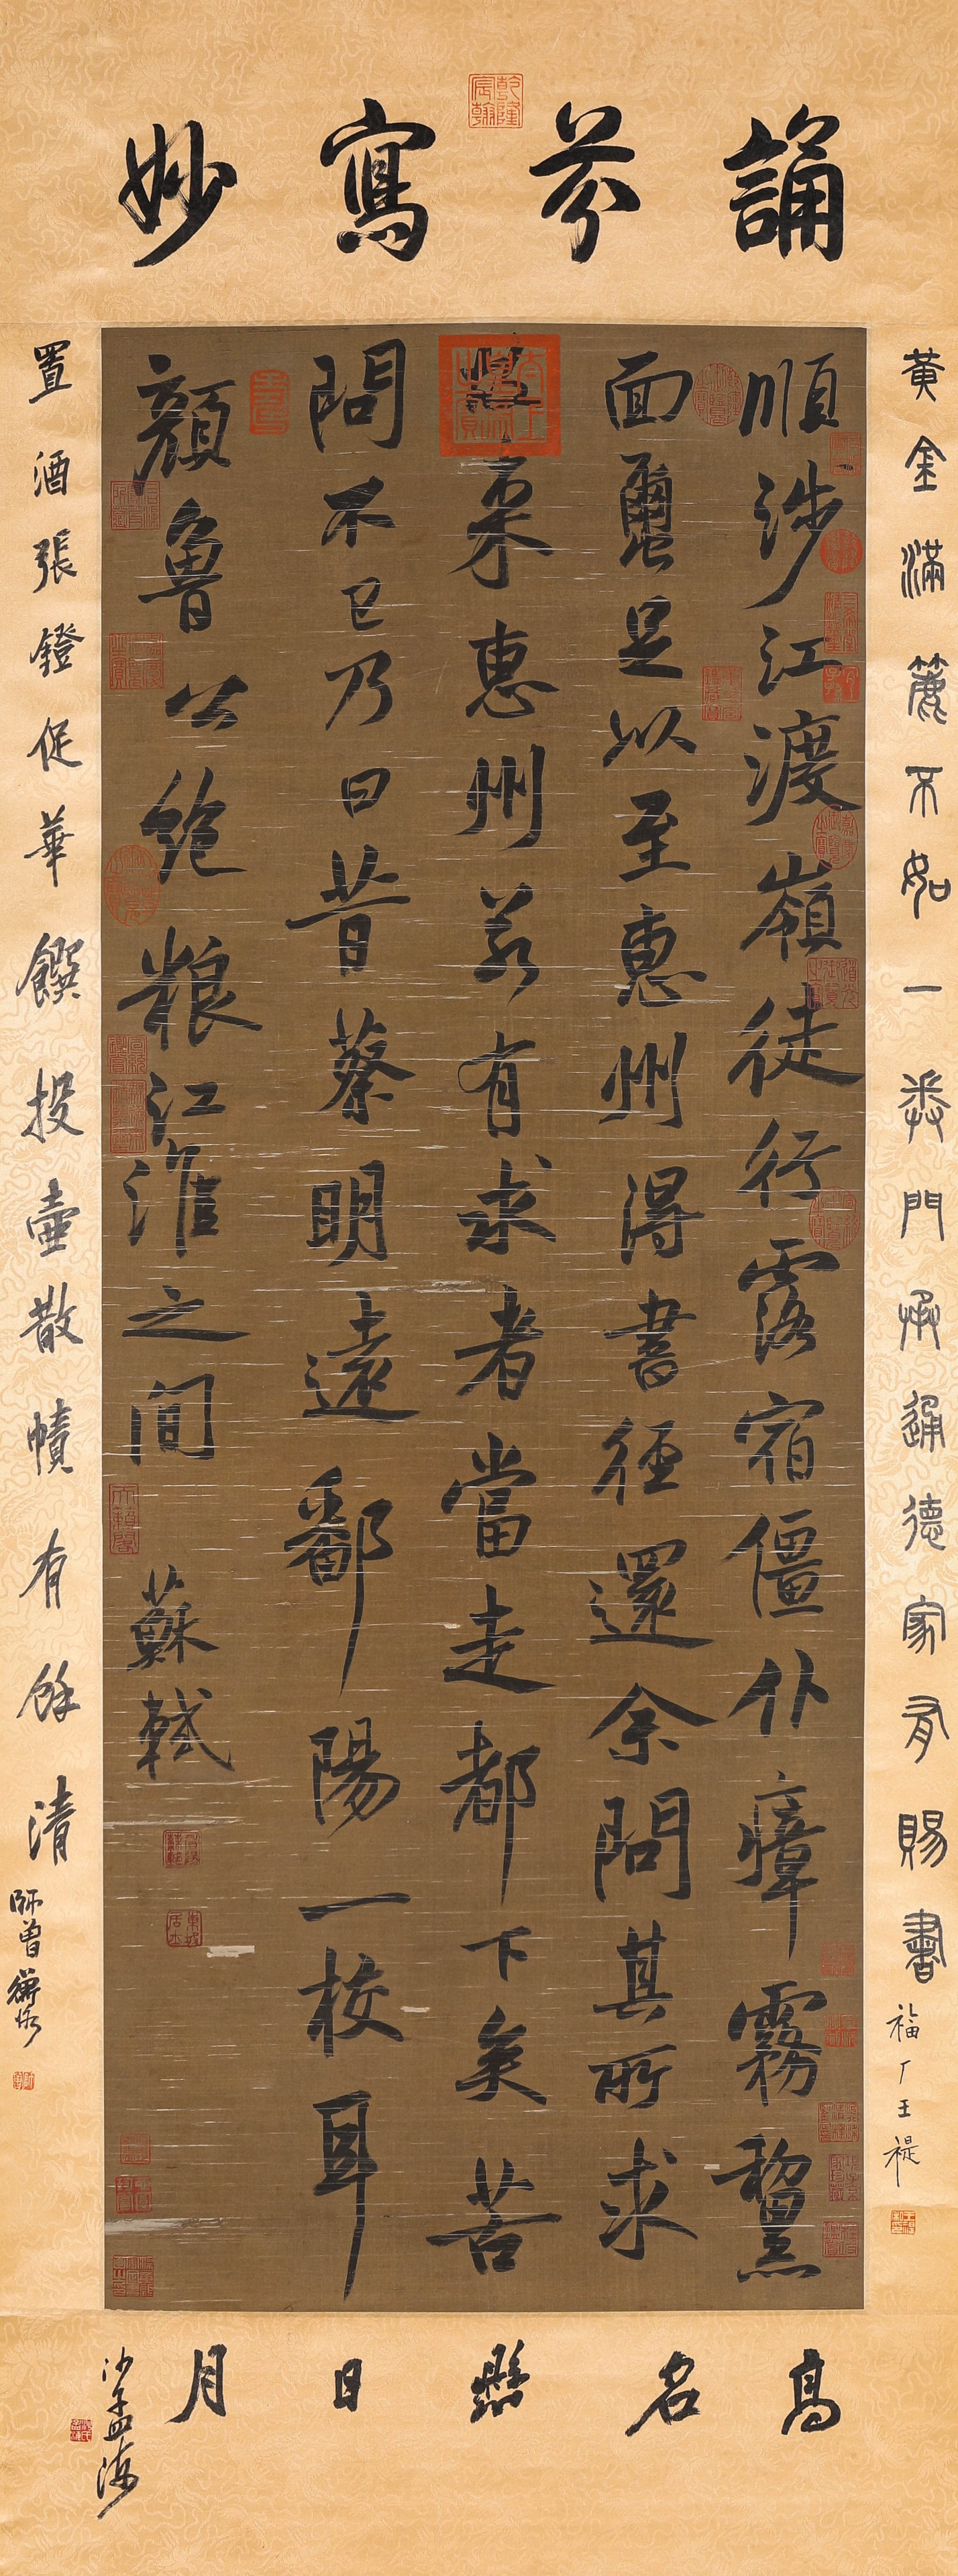 乾隆宸翰
誦芬寫妙
黃金滿簏不如一門承通德家有賜書
福厂王禔
順涉江渡嶺徒行露宿僵仆瘴霧黧
面繭足以至惠州得書徑還余問其所求
来惠州若有求者當走都下矣苦
問不已乃曰昔蔡明遠鄱陽一校耳
顏魯公絶粮江淮之間
蘇軾
置酒張鐙促華饌投壺散幘有餘清
師曾衡恪
高名懸日月
沙孟海